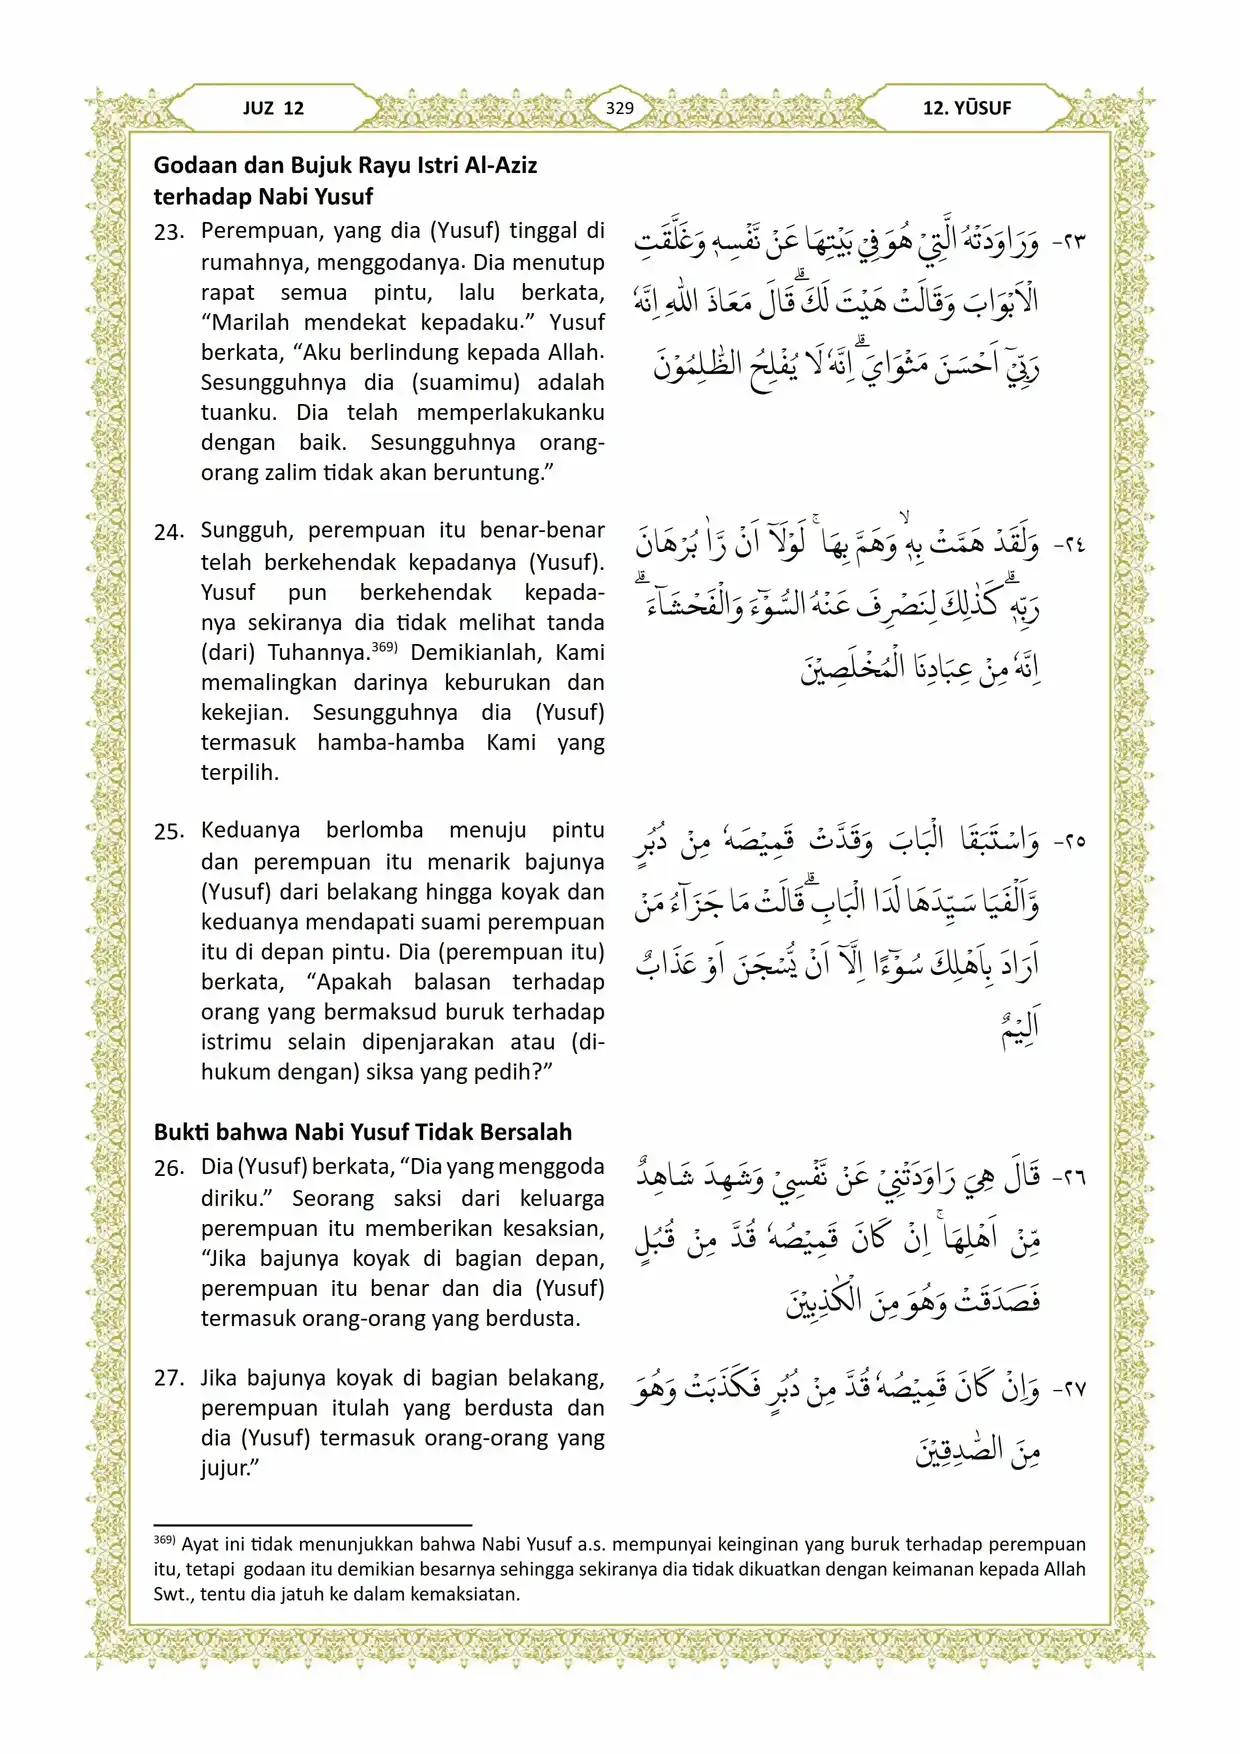 JUZ 12
329
12. YŪSUF
Godaan dan Bujuk Rayu Istri Al-Aziz
terhadap Nabi Yusuf
23. Perempuan, yang dia (Yusuf) tinggal di
rumahnya, menggodanya. Dia menutup
rapat semua pintu, lalu berkata,
“Marilah mendekat kepadaku.” Yusuf
berkata, “Aku berlindung kepada Allah.
Sesungguhnya dia (suamimu) adalah
tuanku. Dia telah memperlakukanku
dengan baik. Sesungguhnya orang-
orang zalim tidak akan beruntung.”
٢٣- وَرَاوَدَتْهُ الَّتِيْ هُوَ فِيْ بَيْتِهَا عَنْ نَّفْسِهٖ وَغَلَّقَتِ
الْاَبْوَابَ وَقَالَتْ هَيْتَ لَكَ ۗقَالَ مَعَاذَ اللّٰهِ اِنَّهٗ
رَبِّيْٓ اَحْسَنَ مَثْوَايَ ۗاِنَّهٗ لَا يُفْلِحُ الظّٰلِمُوْنَ
24. Sungguh, perempuan itu benar-benar
telah berkehendak kepadanya (Yusuf).
Yusuf pun berkehendak kepada-
nya sekiranya dia tidak melihat tanda
(dari) Tuhannya.369) Demikianlah, Kami
memalingkan darinya keburukan dan
kekejian. Sesungguhnya dia (Yusuf)
termasuk hamba-hamba Kami yang
terpilih.
٢٤- وَلَقَدْ هَمَّتْ بِهٖۙ وَهَمَّ بِهَا ۚ لَوْلَآ اَنْ رَّاٰ بُرْهَانَ
رَبِّهٖۗ كَذٰلِكَ لِنَصْرِفَ عَنْهُ السُّوْۤءَ وَالْفَحْشَاۤءَۗ
اِنَّهٗ مِنْ عِبَادِنَا الْمُخْلَصِيْنَ
25. Keduanya berlomba menuju pintu
dan perempuan itu menarik bajunya
(Yusuf) dari belakang hingga koyak dan
keduanya mendapati suami perempuan
itu di depan pintu. Dia (perempuan itu)
berkata, “Apakah balasan terhadap
orang yang bermaksud buruk terhadap
istrimu selain dipenjarakan atau (di-
hukum dengan) siksa yang pedih?”
٢٥- وَاسْتَبَقَا الْبَابَ وَقَدَّتْ قَمِيْصَهٗ مِنْ دُبُرٍ
وَّاَلْفَيَا سَيِّدَهَا لَدَا الْبَابِۗ قَالَتْ مَا جَزَاۤءُ مَنْ
اَرَادَ بِاَهْلِكَ سُوْۤءًا اِلَّآ اَنْ يُّسْجَنَ اَوْ عَذَابٌ
اَلِيْمٌ
Bukti bahwa Nabi Yusuf Tidak Bersalah
26. Dia (Yusuf) berkata, “Dia yang menggoda
diriku.” Seorang saksi dari keluarga
perempuan itu memberikan kesaksian,
“Jika bajunya koyak di bagian depan,
perempuan itu benar dan dia (Yusuf)
termasuk orang-orang yang berdusta.
٢٦- قَالَ هِيَ رَاوَدَتْنِيْ عَنْ نَّفْسِيْ وَشَهِدَ شَاهِدٌ
مِّنْ اَهْلِهَا ۚ اِنْ كَانَ قَمِيْصُهٗ قُدَّ مِنْ قُبُلٍ
فَصَدَقَتْ وَهُوَ مِنَ الْكٰذِبِيْنَ
27. Jika bajunya koyak di bagian belakang,
perempuan itulah yang berdusta dan
dia (Yusuf) termasuk orang-orang yang
jujur.”
٢٧- وَاِنْ كَانَ قَمِيْصُهٗ قُدَّ مِنْ دُبُرٍ فَكَذَبَتْ وَهُوَ
مِنَ الصّٰدِقِيْنَ
369) Ayat ini tidak menunjukkan bahwa Nabi Yusuf a.s. mempunyai keinginan yang buruk terhadap perempuan
itu, tetapi godaan itu demikian besarnya sehingga sekiranya dia tidak dikuatkan dengan keimanan kepada Allah
Swt., tentu dia jatuh ke dalam kemaksiatan.